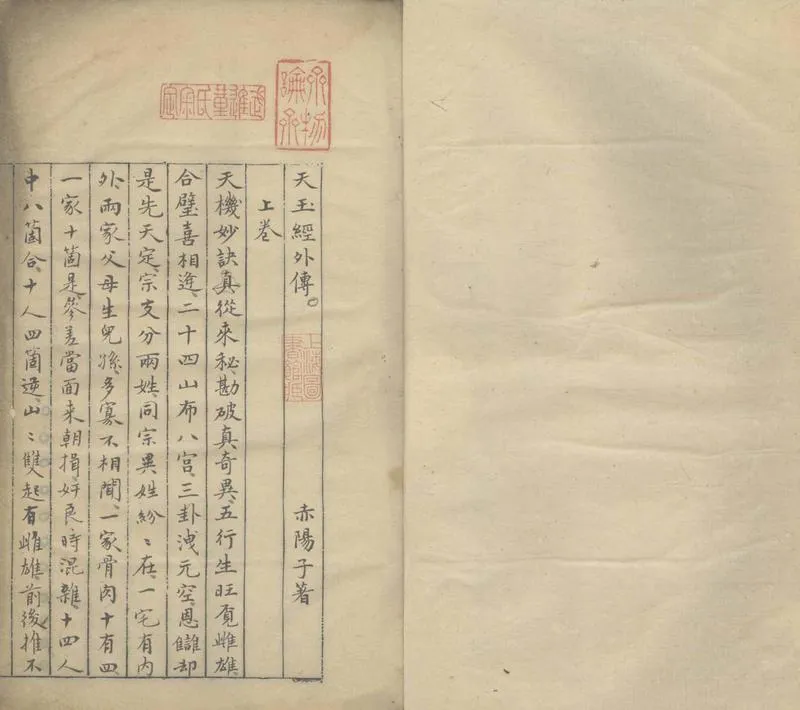 齊物論齋
天玉經外傳。 上海圖書館藏 赤陽子著
上卷
天機妙訣真從來秘、勘破真奇異、五行生旺覓雌雄、
合璧喜相逢、二十四山布八宮、三卦洩元空、恩讎却
是先天定、宗支分兩姓、同宗異姓紛〻在、一宅有內
外、兩家父母生兒孫、多寡不相間、一家骨肉十有四、
一家十箇是、參差當面来朝揖、奸良時混雜、十四人
中八箇合、十人四箇逆、山〻雙起有雌雄、前後推不